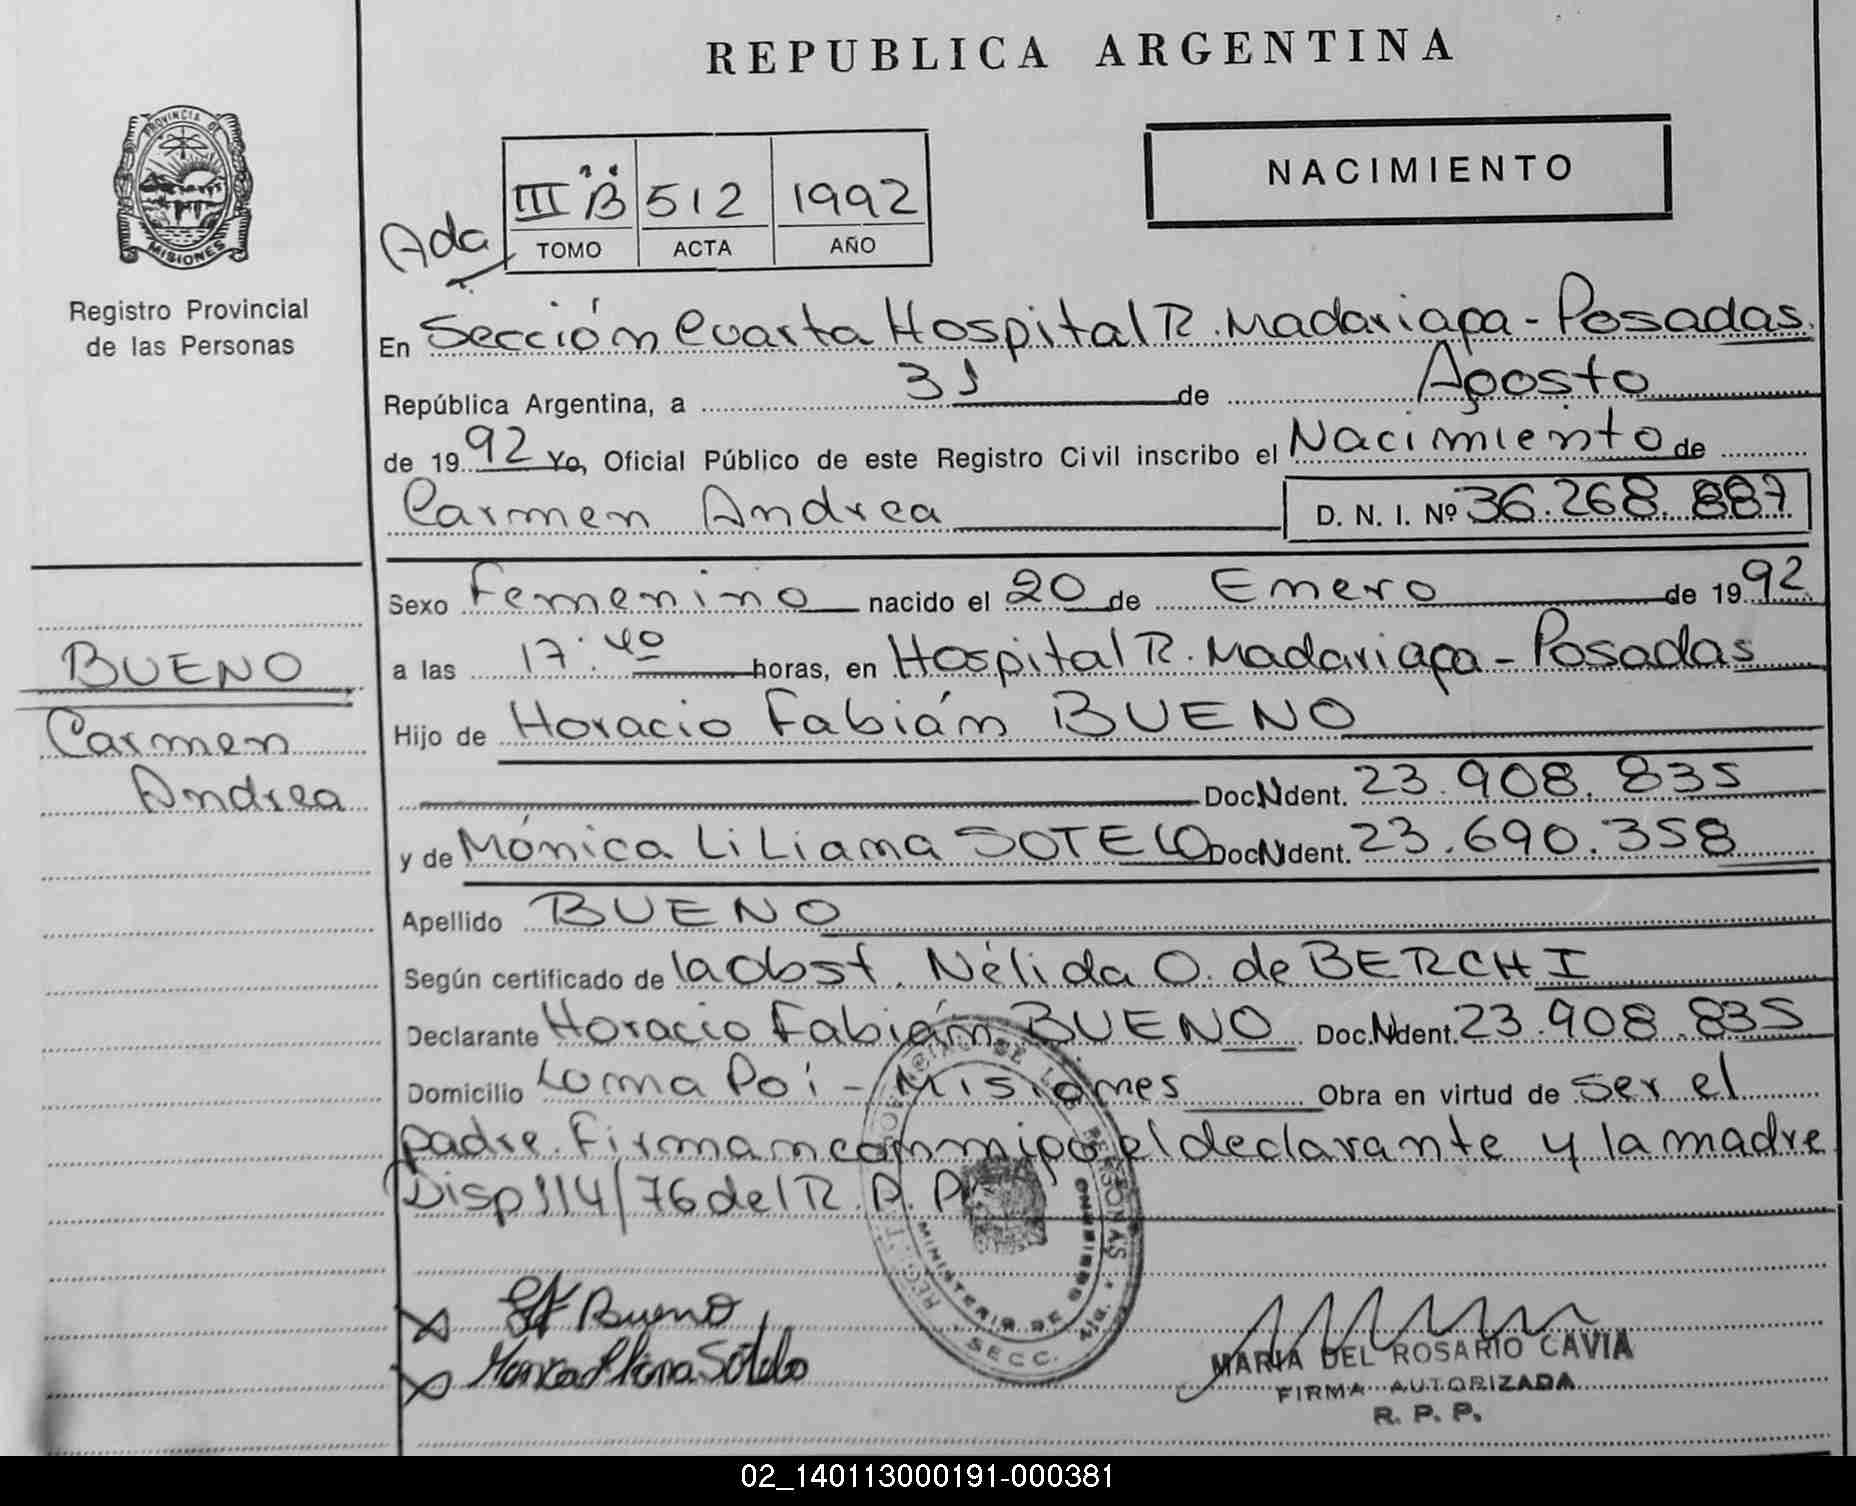 REPUBLICA ARGENTINA
PROVINCIA DE
MISIONES
Registro Provincial
de las Personas
NACIMIENTO
Ada
III "B" 512 1992
TOMO ACTA AÑO
En Sección Cuarta Hospital R. Madariaga - Posadas.
República Argentina, a 31 de Agosto
de 1992 Yo, Oficial Público de este Registro Civil inscribo el Nacimiento de
Carmen Andrea D. N. I. Nº 36.268.887
Sexo Femenino nacido el 20 de Enero de 1992
a las 17:40 horas, en Hospital R. Madariaga - Posadas
Hijo de Horacio Fabián BUENO
Doc. Ident. 23.908.835
y de Mónica Liliana SOTELO Doc. Ident. 23.690.358
Apellido BUENO
Según certificado de la obst. Nélida O. de BERCHI
Declarante Horacio Fabián BUENO Doc. Ident. 23.908.835
Domicilio Loma Poi - Misiones Obra en virtud de ser el
padre. Firman conmigo el declarante y la madre
Disp 114/76 del R. P. P.
BUENO
Carmen
Andrea
Bueno
Sotelo
MINISTERIO DE GOBIERNO
SECC.
MARIA DEL ROSARIO CAVIA
FIRMA AUTORIZADA
R. P. P.
02_140113000191-000381